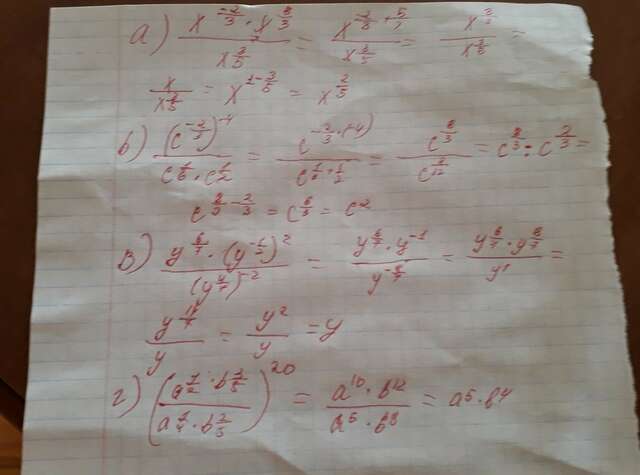 а) (x^(-2/3) · x^(5/3)) / x^(3/5) = x^(-2/3 + 5/3) / x^(3/5) = x^(3/3) / x^(3/5) =
x / x^(3/5) = x^(1 - 3/5) = x^(2/5)
б) (c^(-2/3))^(-4) / (c^(1/6) · c^(1/2)) = c^(-2/3 · (-4)) / c^(1/6 + 1/2) = c^(8/3) / c^(8/12) = c^(8/3) : c^(2/3) =
c^(8/3 - 2/3) = c^(6/3) = c^2
в) (y^(6/7) · (y^(-1/2))^2) / (y^(4/7))^(-2) = (y^(6/7) · y^(-1)) / y^(-8/7) = (y^(6/7) · y^(8/7)) / y^1 =
y^(14/7) / y = y^2 / y = y
г) ((a^(1/2) · b^(3/5)) / (a^(1/4) · b^(2/5)))^20 = (a^10 · b^12) / (a^5 · b^8) = a^5 · b^4